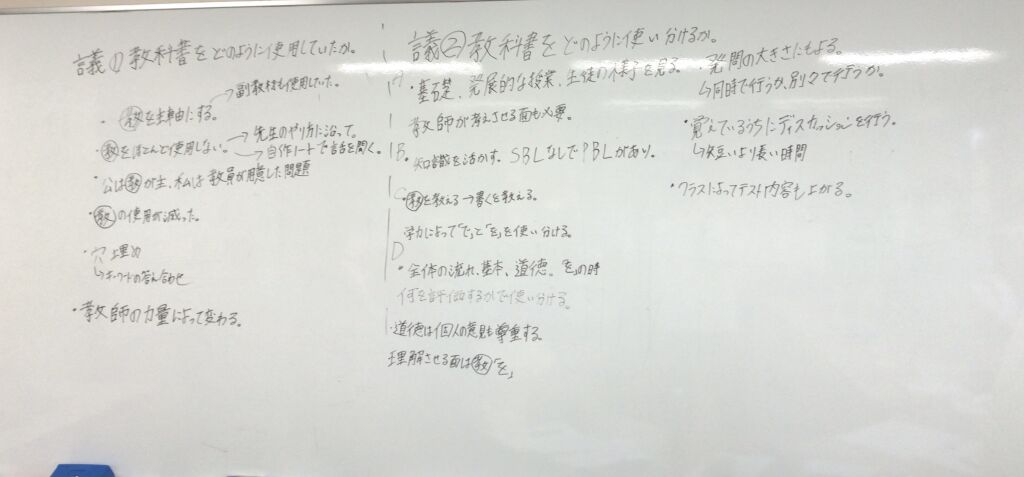 議① 教科書をどのように使用していたか。
・教を主軸にする。
→副教材も使用していた。
・教をほとんど使用しない。
→先生のやり方に沿って。
→自作ノートで話を聞く。
・公は教が主、私は教員が用意した問題
・教の使用が減った。
・穴埋め
↳キーワードの答え合わせ
・教師の力量によって変わる。
議② 教科書をどのように使い分けるか。
A
・基礎、発展的な授業、生徒の様子を見る。
教師が教えさせる面も必要。
B
・知識を活かす。SBLなしでPBLがあり。
C
・教を教える→書くを教える。
学力によって「で」と「を」を使い分ける。
D
・全体の流れ、基本、道徳。「を」の時
何を評価するかで使い分ける。
・道徳は個人の意見も尊重する。
理解させる面は教「を」
発問の大きさにもよる。
↳同時で行うか、別々で行うか。
・覚えているうちにディスカッションを行う。
↳短いより長い時間
・クラスによってテスト内容も上がる。